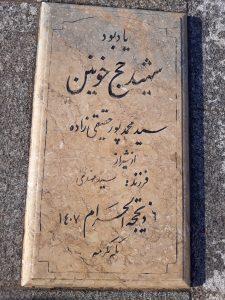 یادبود
شهید حج خونین
سید محمد پورحقیقی‌زاده
از شیراز
فرزند: سید مهدی
۶ ذیحجة الحرام ۱۴۰۷
مکه مکرمه